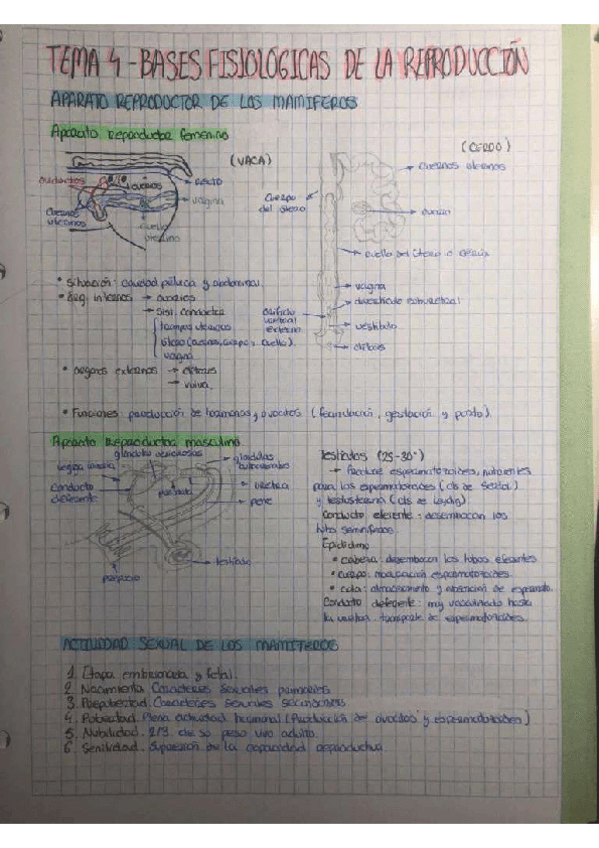 TEMA 4 - BASES FISIOLÓGICAS DE LA REPRODUCCIÓN
APARATO REPRODUCTOR DE LOS MAMÍFEROS
Aparato reproductor femenino
(VACA)
oviductos
cuernos
recto
vagina
cuernos uterinos
cuello uterino
(CERDO)
cuernos uterinos
cuerpo del útero
ovario
cuello del útero o cérvix
vagina
orificio uretral externo
diverticulo suburetral
vestíbulo
clítoris
• Situación: cavidad pélvica y abdominal.
• Org. internos → ovarios
→ Sist. conductor
trompas uterinas
útero (cuernos, cuerpo y cuello).
vagina
• órganos externos → clítoris
→ vulva.
• Funciones: producción de hormonas y ovocitos (fecundación, gestación y parto).
Aparato Reproductor masculino
glándulas vesiculosas
glándulas
conducto deferente
próstata
uretra
pene
testículo
prepucio
Testículos (25-30°)
→ Producir espermatozoides, nutrientes
para los espermatozoides (cls de Sertoli)
y testosterona (cls de Leydig)
Conducto eferente: desembocan los
tubos seminíferos.
Epidídimo
• cabeza: desembocan los tubos eferentes
• cuerpo: maduración espermatozoides.
• cola: almacenamiento y absorción de esperma.
Conducto deferente: muy vascularizado hasta
la uretra. transporte de espermatozoides.
ACTIVIDAD SEXUAL DE LOS MAMÍFEROS
1. Etapa embrionaria y fetal.
2. Nacimiento. Caracteres sexuales primarios
3. Prepubertad. Caracteres sexuales secundarios
4. Pubertad. Plena actividad hormonal (Producción de ovocitos y espermatozoides)
5. Nubilidad. 2/3 de su peso vivo adulto.
6. Senilidad. Supresión de la capacidad reproductiva.